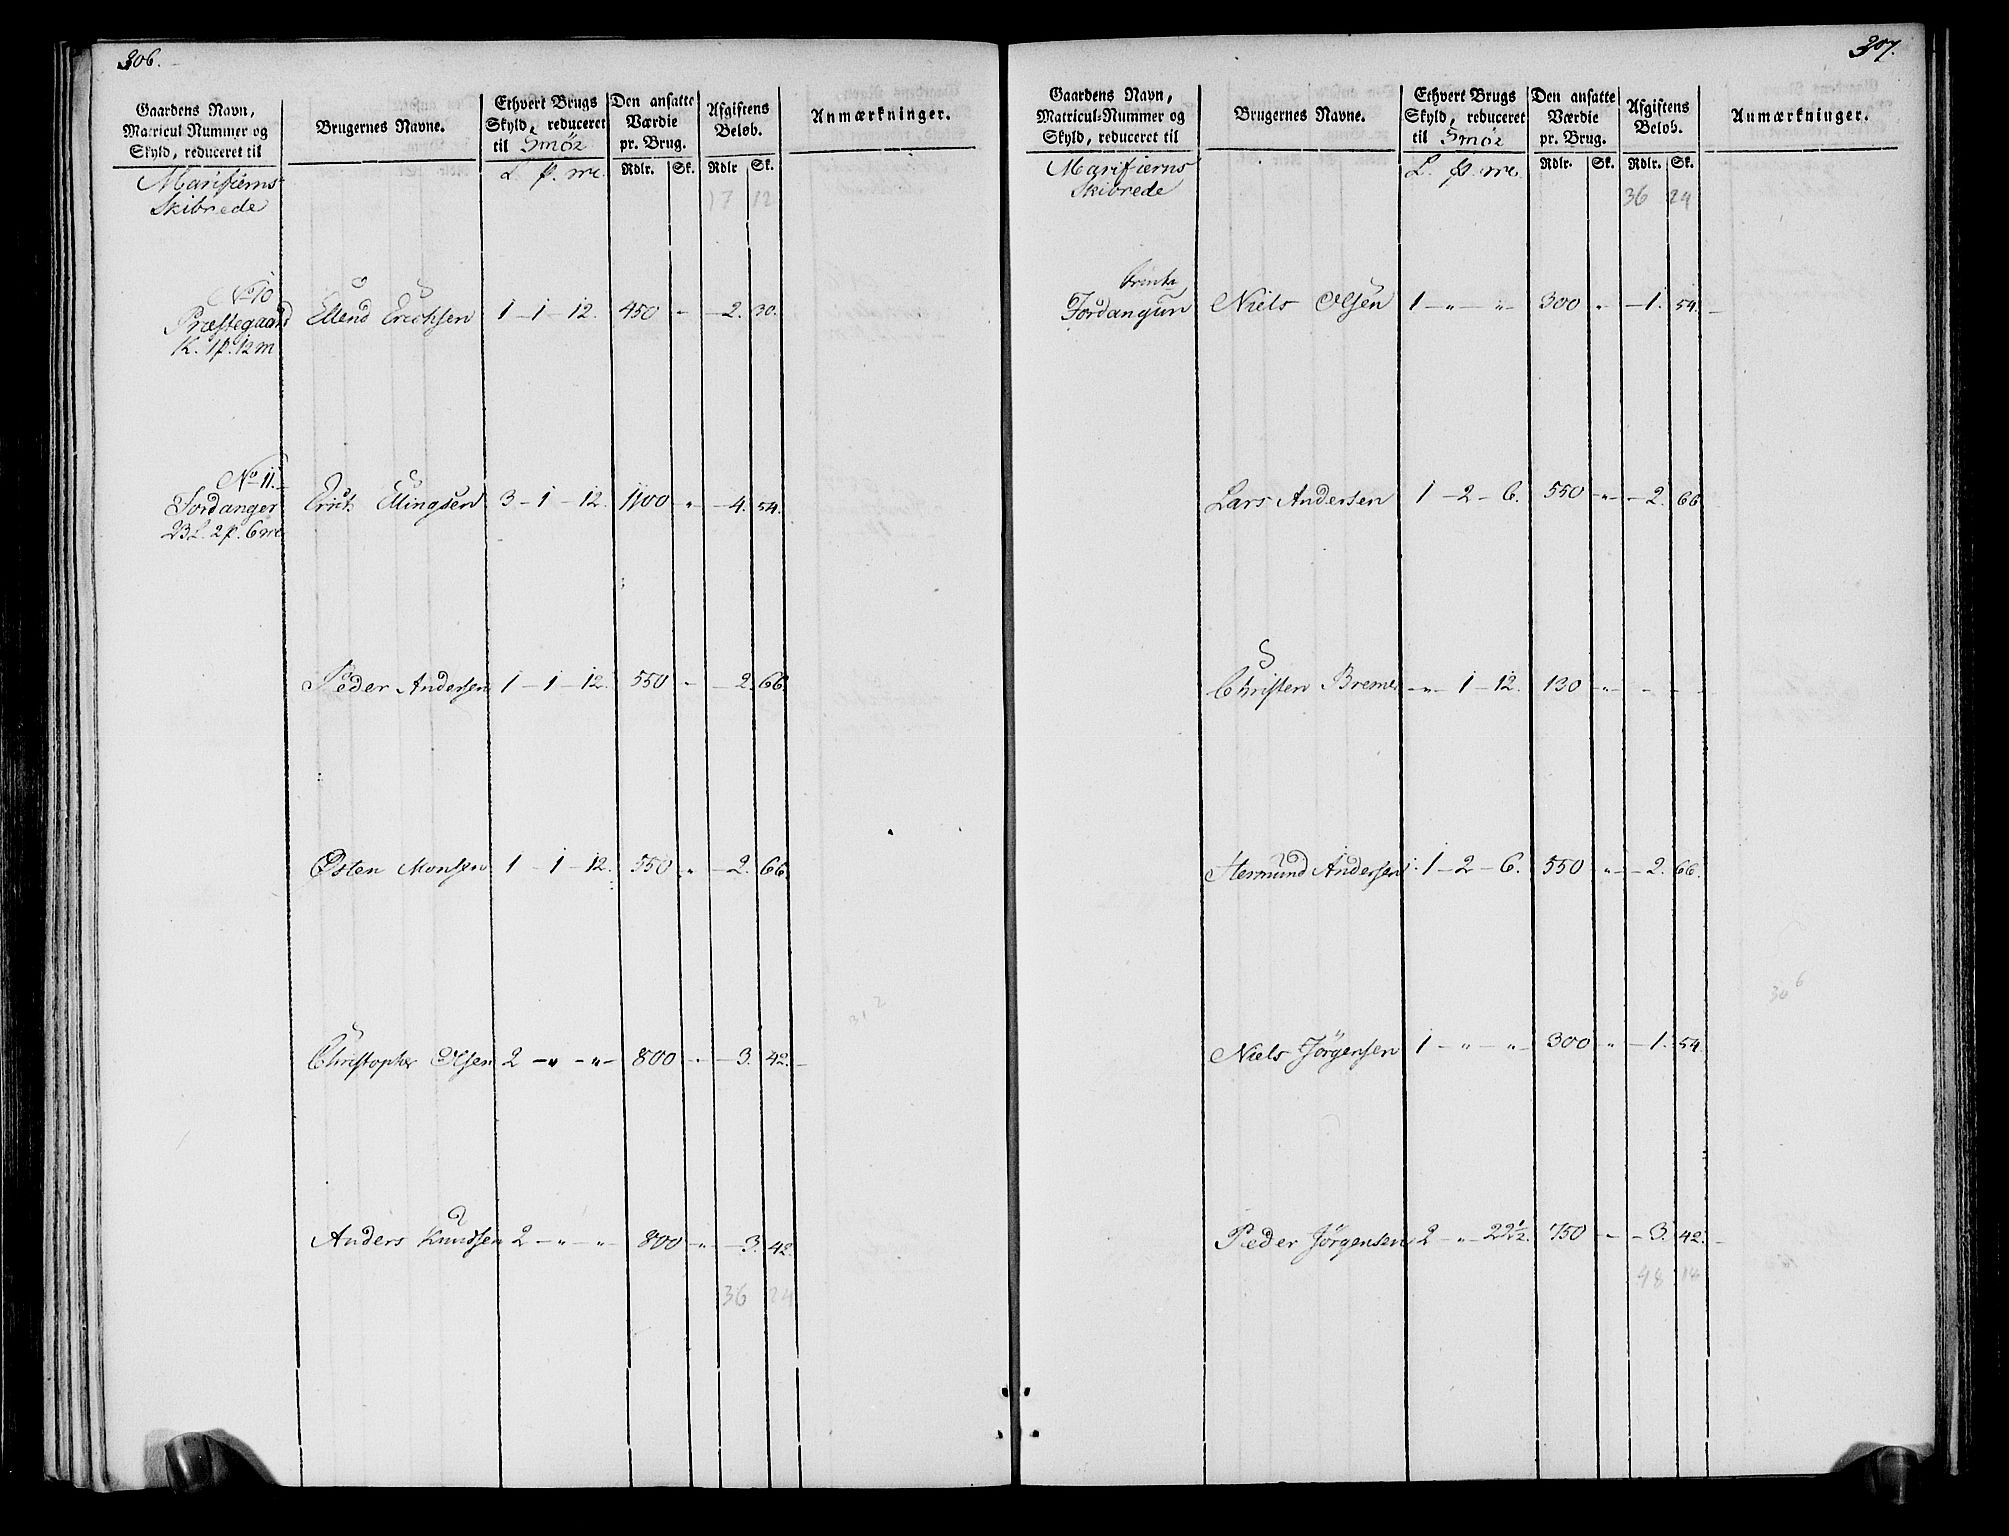 306.
Gaardens Navn, Matricul Nummer og Skyld, reduceret til
Brugernes Navne.
Ethvert Brugs Skyld, reduceret til Smör
Den ansatte Værdie pr. Brug.
Afgiftens Beløb.
Anmærkninger.
Marifierns Skibrede
L. p. mr.
Rdlr. Sk. Rdlr Sk.
17 12
No 10
Præstegaard Ellend Erichsen 1 - 1 - 12. 450 " - 2. 30.
1L. 1p. 12 m
No 11.
Jordanger Erich Ellingsen 3 - 1 - 12. 1100 " - 4. 54.
23L. 2p. 6 mr
Peder Andersen 1 - 1 - 12. 550 - - 2. 66.
Østen Monsen 1 - 1 - 12. 550 " - 2. 66.
Christopher Olsen 2 - " - " - 800 - - 3. 42. -
31 2
Anders Knudsen 2 - " - " 800 - " - 3. 42.
36 24
307.
Gaardens Navn, Matricul-Nummer og Skyld, reduceret til
Brugernes Navne.
Ethvert Brugs Skyld, reduceret til Smör
Den ansatte Værdie pr. Brug.
Afgiftens Beløb.
Anmærkninger.
Marifierns Skibrede
L. p. mr.
Rdlr. Sk. Rdlr. Sk.
36 24
Jordangun Niels Olsen 1 - " - " - 300 " - 1. 54. -
Lars Andersen 1 - 2 - 6. 550 - " - 2. 66
Christen Bremer - " - 1 - 12. 130 - " - - -
Hermund Andersen 1 - 2 - 6. 550 - " - 2. 66.
30 6
Niels Jörgensen 1 - " - " - 300 " - 1. 54
Peder Jörgensen 2 - " - 22 1/2. 750 - - 3. 42. -
48 18